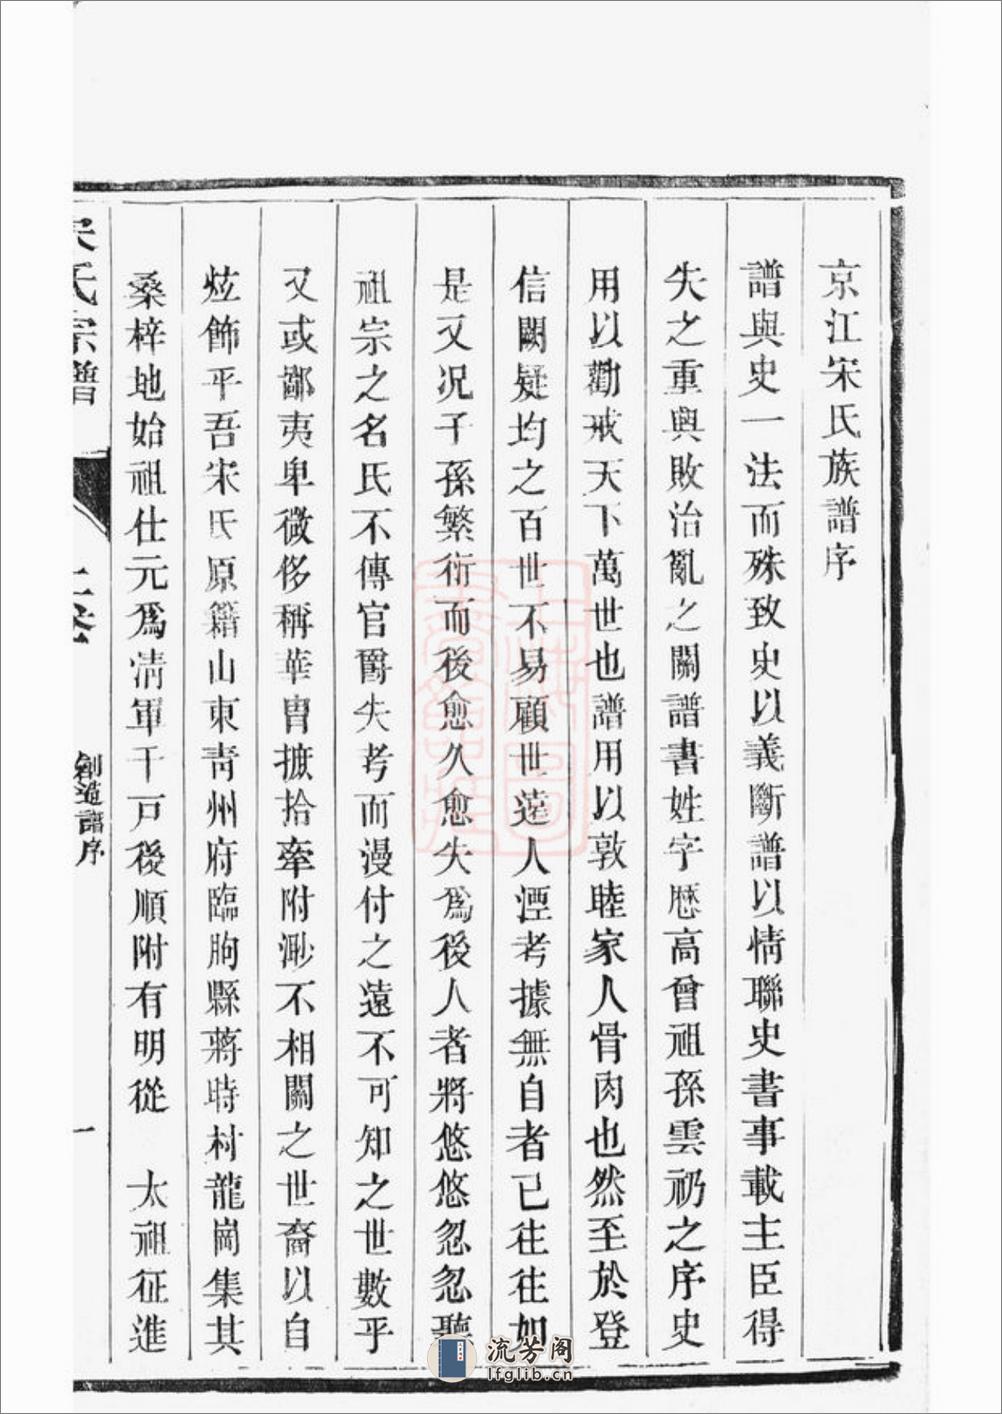 京江宋氏族譜序
譜與史一法而殊致史以義斷譜以情聯史書事載主臣得
失之重與敗治亂之關譜書姓字歷高曾祖孫雲礽之序史
用以勸戒天下萬世也譜用以敦睦家人骨肉也然至於登
信闕疑均之百世不易顧世遠人湮考據無自者已往往如
是又况子孫繁衍而後愈久愈失爲後人者將悠悠忽忽聽
祖宗之名氏不傳官爵失考而漫付之遠不可知之世數乎
又或鄙夷卑微侈稱華胄摭拾牽附渺不相關之世裔以自
炫飾乎吾宋氏原籍山東青州府臨朐縣蔣時村龍崗集其
桑梓地始祖仕元爲清軍千戸後順附有明從 太祖征進
宋氏宗譜
上卷
創造譜序
一
流芳阁
lfglib.cn